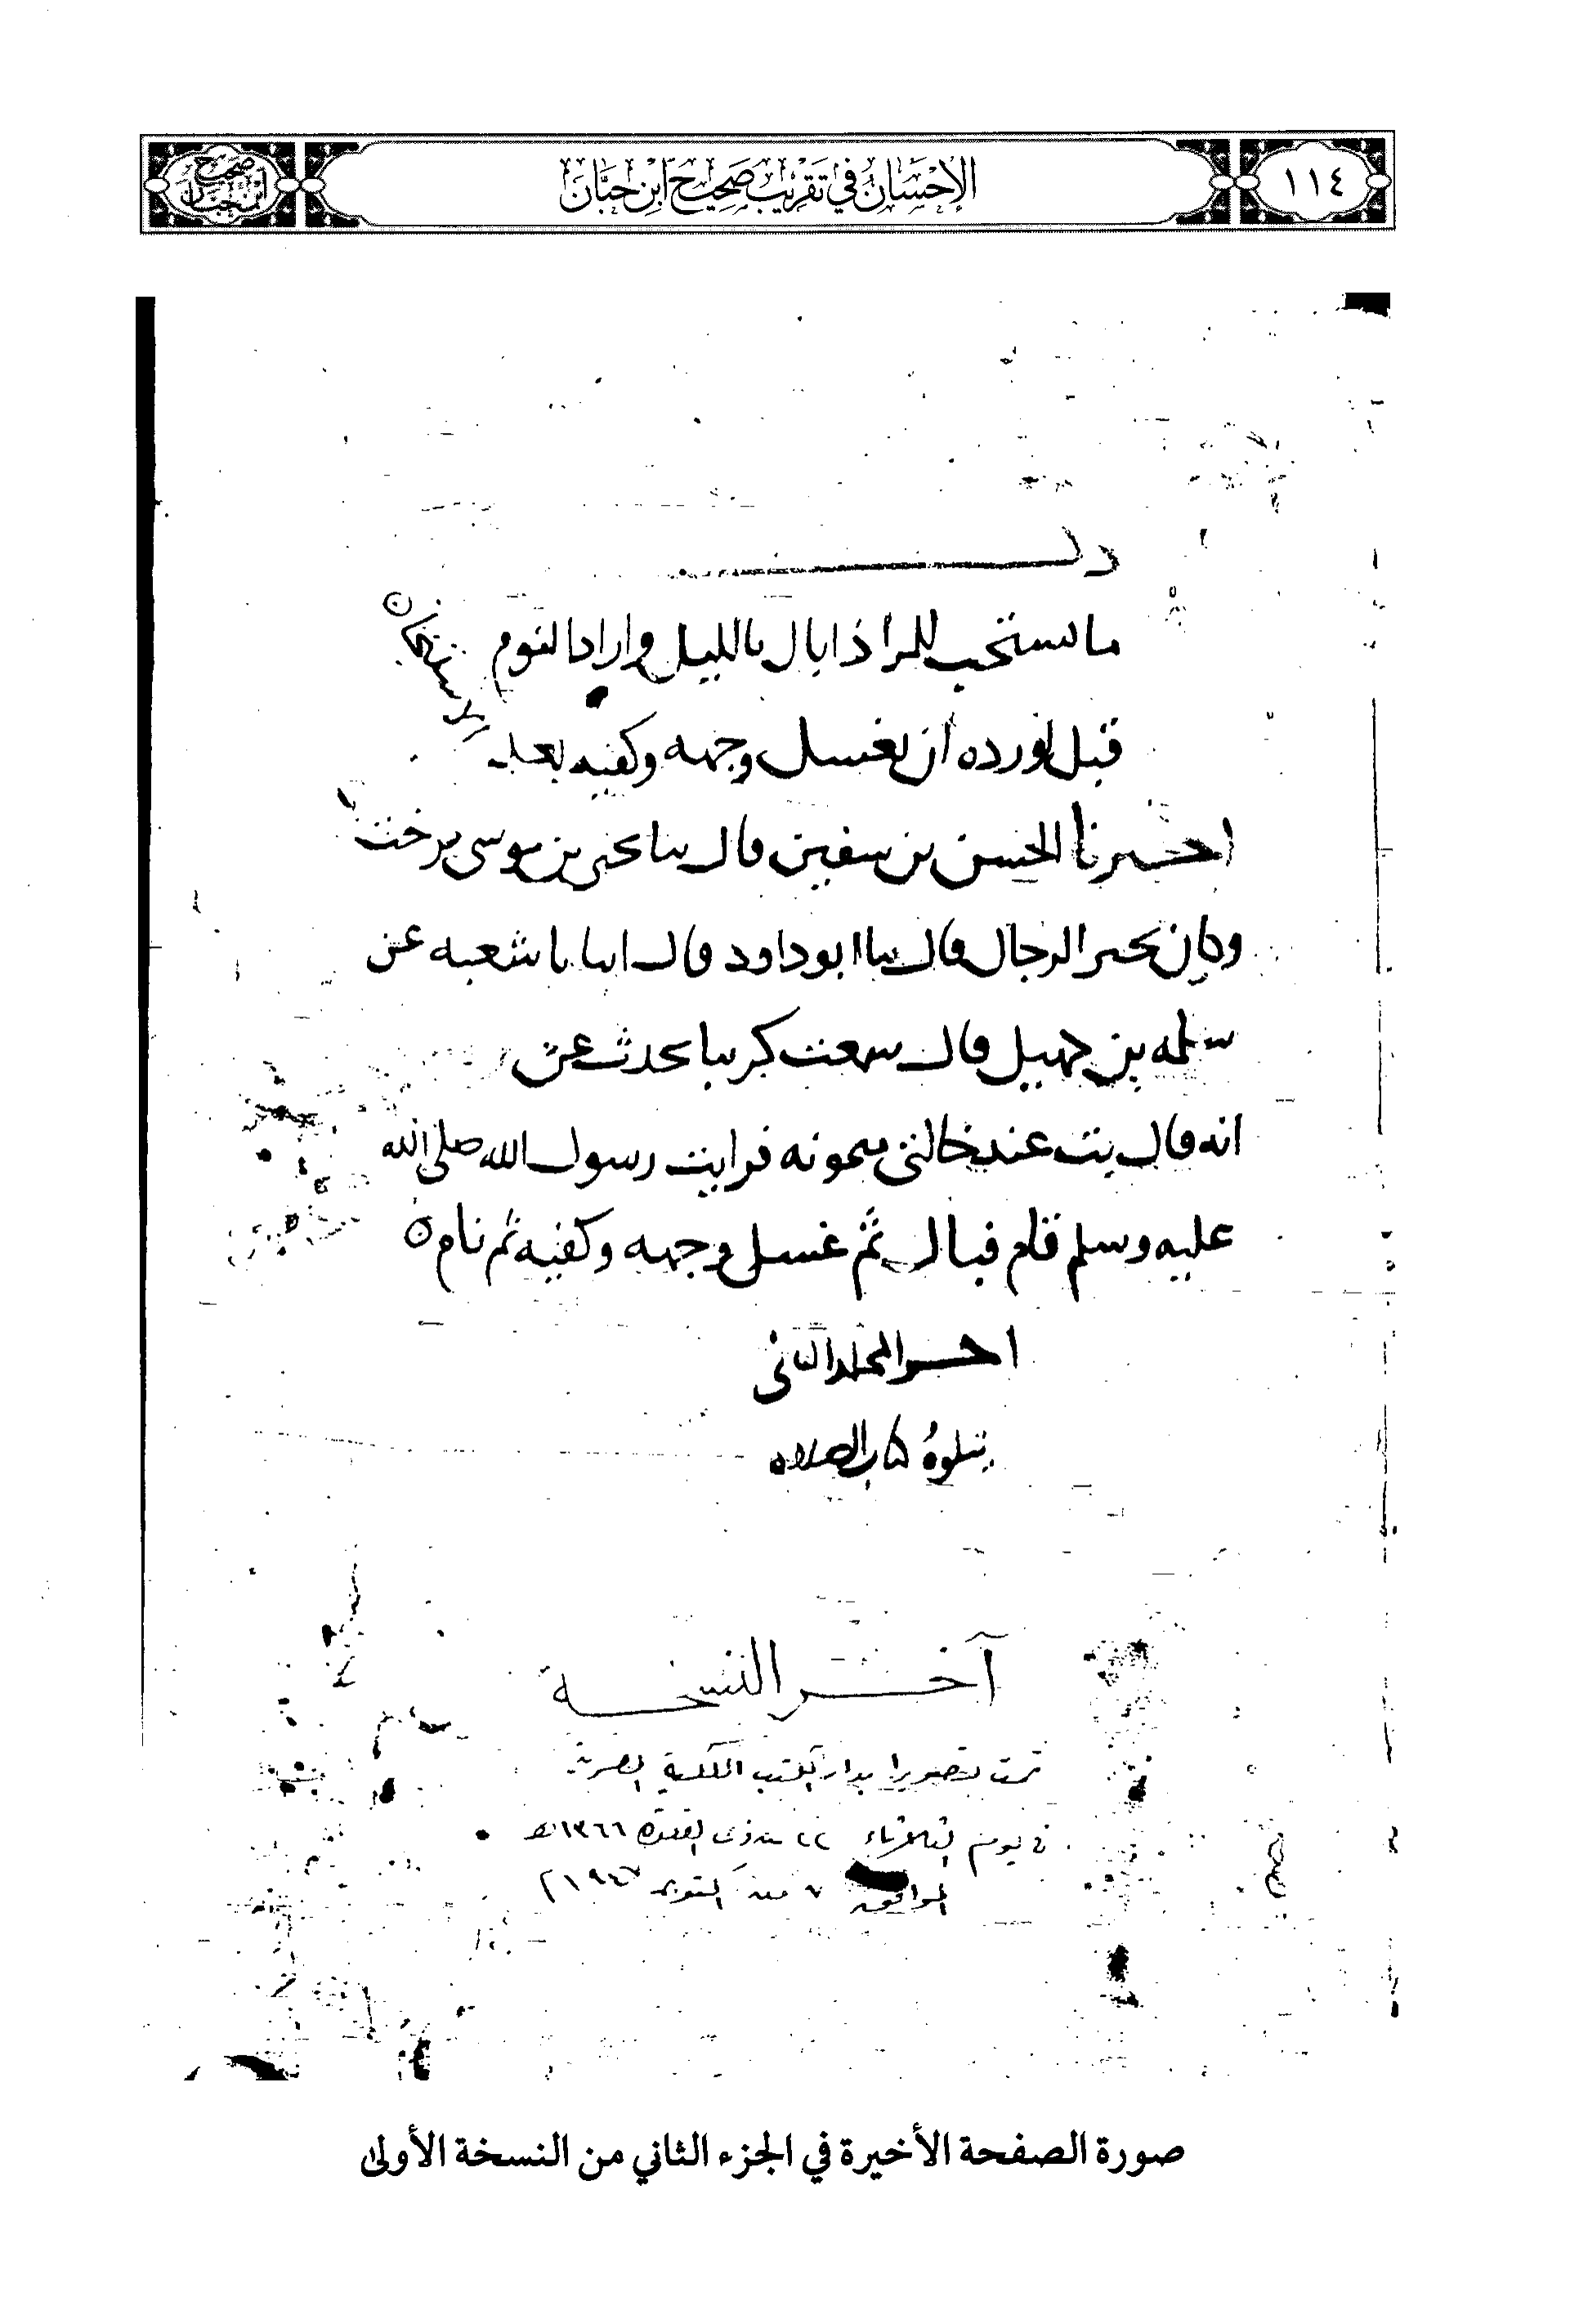 ١١٤
الإحسان في تقريب صحيح ابن حبان
صحيح ابن حبان
ذكر
ما يستحب للمرا ذا بال بالليل واراد النوم
قبل لورده ان يغسل وجهه وكفيه بعد
الاستنجاء
اخبرنا الحسن بن سفين قال ثنا يحيى بن موسى بن خت
وكان بخير الرجال قال ثنا ابو داود قال انبانا شعبه عن
سلمه بن كهيل قال سمعت كريبا يحدث عن
انه قال بت عند خالتي ميمونه فرايت رسول الله صلى الله
عليه وسلم قام فبال ثم غسل وجهه وكفيه ثم نام
اخر المجلد الثاني
يتلوه كتاب الصلاه
آخر النسخة
تمت تصويرا بدار الكتب الملكية المصرية
في يوم الثلاثاء ٢٢ من ذى القعدة ١٣٦٦ هـ
الموافق ٧ من اكتوبر ١٩٤٧ م
صورة الصفحة الأخيرة في الجزء الثاني من النسخة الأولى